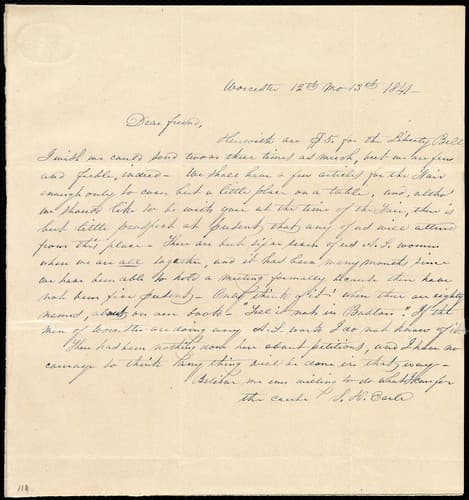 Worcester 12th Mo 13th 1841-
Dear friend,
Herewith are $5, for the Liberty Bell
I wish we could send two or three times as much, but we are few
and feeble, indeed- We shall have a few articles for the Fair
enough only to cover but a little place on a table, and, altho
we should like to be with you at the time of the Fair, there is
but little prospect at present, that any of us will attend
from this place- There are but six or seven of us A. S. women
when we are all together, and it has been many months since
we have been able to hold a meeting formally because there have
not been five present- Only think of it! when there are eighty
names, about, on our books- "Tell it not in Boston". If the
men of Worcester are doing any A. S. work I do not know of it
There has been nothing done here about petitions, and I have no
courage to think any thing will be done in that way-
Believe me ever willing to do what I can for
the cause S. H. Earle
118